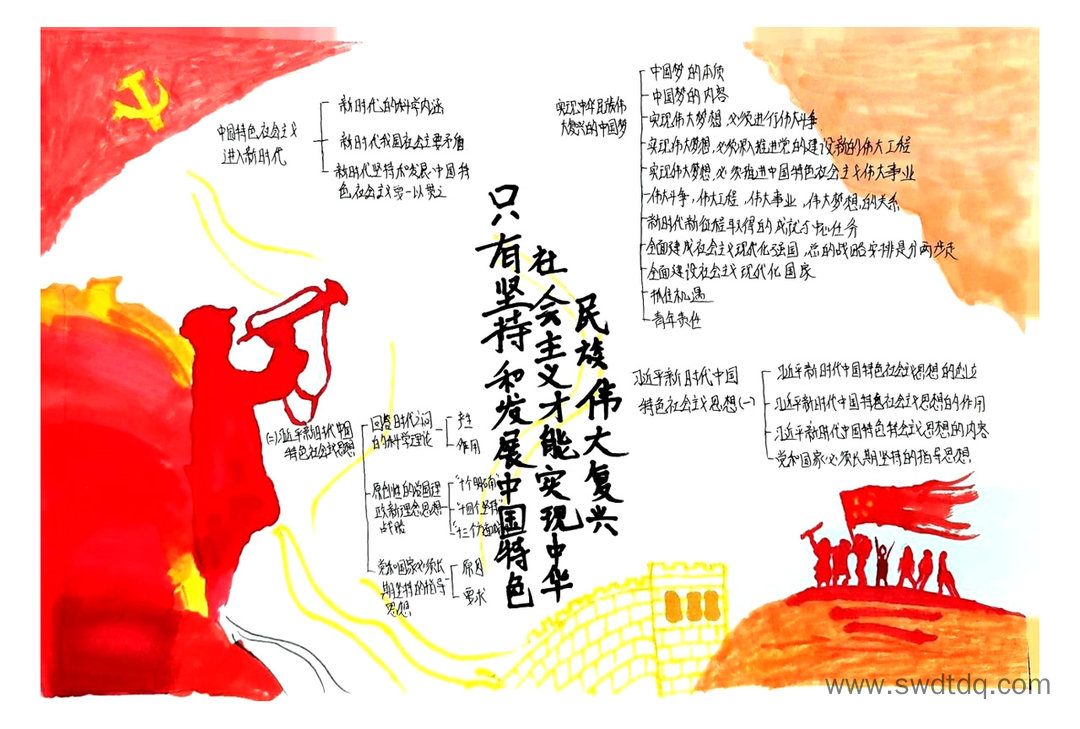 中国特色社会主义
进入新时代
新时代的科学内涵
新时代我国社会主要矛盾
新时代坚持和发展中国特
色社会主义要一以贯之
实现中华民族伟
大复兴的中国梦
中国梦的本质
中国梦的内容
实现伟大梦想,必须进行伟大斗争
实现伟大梦想,必须深入推进党的建设新的伟大工程
实现伟大梦想,必须推进中国特色社会主义伟大事业
伟大斗争,伟大工程,伟大事业,伟大梦想,的关系
新时代新征程取得的成就与中心任务
全面建成社会主义现代化强国,总的战略安排是分两步走
全面建设社会主义现代化国家
抓住机遇
青年责任
只有坚持和发展中国特色
社会主义才能实现中华
民族伟大复兴
习近平新时代中国
特色社会主义思想(一)
习近平新时代中国特色社会主义思想的创立
习近平新时代中国特色社会主义思想的作用
习近平新时代中国特色社会主义思想的内容
党和国家必须长期坚持的指导思想
(二)习近平新时代中国
特色社会主义思想
回答时代之问
的科学理论
产生
作用
原创性的治国理
政新理念思想
战略
"十个明确"
"十四个坚持"
"十三个方面成就"
党和国家必须长
期坚持的指导
思想
原因
要求
www.swdtdq.com